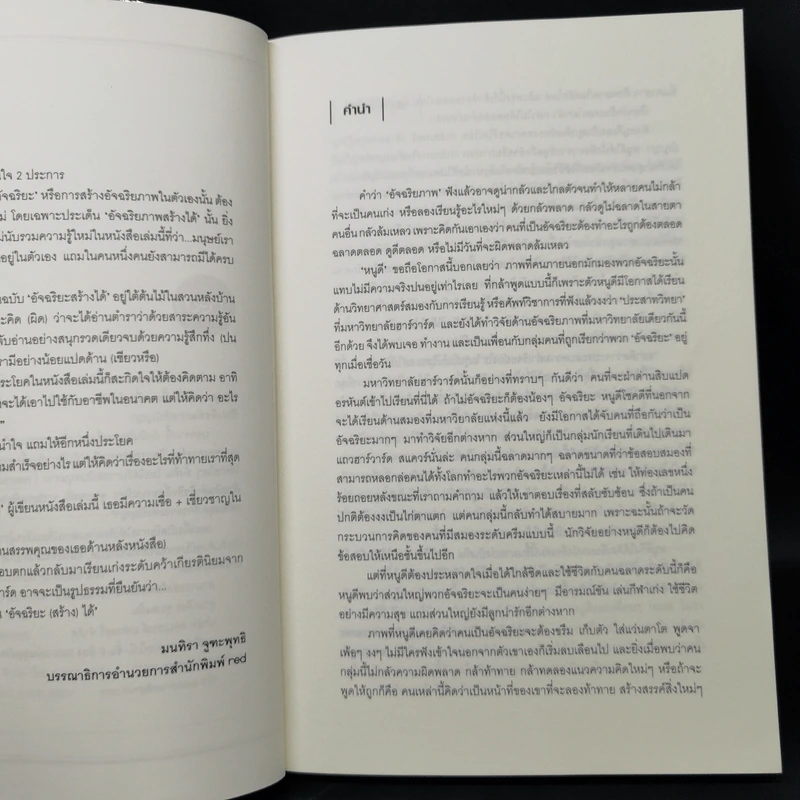 นใจ 2 ประการ
อัจฉริยะ' หรือการสร้างอัจฉริยภาพในตัวเองนั้น ต้อง
ม่ โดยเฉพาะประเด็น 'อัจฉริยภาพสร้างได้' นั้น ยิ่ง
ม่นับรวมความรู้ใหม่ในหนังสือเล่มนี้ที่ว่า...มนุษย์เรา
อยู่ในตัวเอง แถมในคนหนึ่งคนยังสามารถมีได้ครบ
ฉบับ 'อัจฉริยะสร้างได้' อยู่ใต้ต้นไม้ในสวนหลังบ้าน
ะคิด (ผิด) ว่าจะได้อ่านตำราว่าด้วยสาระความรู้อัน
ับอ่านอย่างสนุกรวดเดียวจบด้วยความรู้สึกทึ่ง (ปน
รามีอย่างน้อยแปดด้าน (เชียวหรือ)
ระโยคในหนังสือเล่มนี้ก็สะกิดใจให้ต้องคิดตาม อาทิ
จะได้เอาไปใช้กับอาชีพในอนาคต แต่ให้คิดว่า อะไร
"
นำใจ แถมให้อีกหนึ่งประโยค
มสำเร็จอย่างไร แต่ให้คิดเรื่องอะไรที่ท้าทายเราที่สุด
' ผู้เขียนหนังสือเล่มนี้ เธอมีความเชื่อ + เชี่ยวชาญใน
านสรรพคุณของเธอด้านหลังหนังสือ)
อบตกแล้วกลับมาเรียนเก่งระดับคว้าเกียรตินิยมจาก
าร์ด อาจจะเป็นรูปธรรมที่ยืนยันว่า...
น 'อัจฉริยะ (สร้าง) ได้'
มนทิรา จูฑะพุทธิ
บรรณาธิการอำนวยการสำนักพิมพ์ red
คำนำ
คำว่า 'อัจฉริยภาพ' ฟังแล้วอาจดูน่ากลัวและไกลตัวจนทำให้หลายคนไม่กล้า
ที่จะเป็นคนเก่ง หรือลองเรียนรู้อะไรใหม่ๆ ด้วยกลัวพลาด กลัวดูไม่ฉลาดในสายตา
คนอื่น กลัวล้มเหลว เพราะคิดกันเอาเองว่า คนที่เป็นอัจฉริยะต้องทำอะไรถูกต้องตลอด
ฉลาดตลอด ดูดีตลอด หรือไม่มีวันที่จะผิดพลาดล้มเหลว
'หนูดี' ขอถือโอกาสนี้บอกเลยว่า ภาพที่คนภายนอกมักมองพวกอัจฉริยะนั้น
แทบไม่มีความจริงปนอยู่เท่าไรเลย ที่กล้าพูดแบบนี้ก็เพราะตัวหนูดีมีโอกาสได้เรียน
ด้านวิทยาศาสตร์สมองกับการเรียนรู้ หรือศัพท์วิชาการที่ฟังแล้วงงว่า 'ประสาทวิทยา'
ที่มหาวิทยาลัยฮาร์วาร์ด และยังได้ทำวิจัยด้านอัจฉริยภาพที่มหาวิทยาลัยเดียวกันนี้
อีกด้วย จึงได้พบเจอ ทำงาน และเป็นเพื่อนกับกลุ่มคนที่ถูกเรียกว่าพวก 'อัจฉริยะ' อยู่
ทุกเมื่อเชื่อวัน
มหาวิทยาลัยฮาร์วาร์ดนั้นก็อย่างที่ทราบๆ กันดีว่า คนที่จะฝ่าด่านสิบแปด
อรหันต์เข้าไปเรียนที่นี่ได้ ถ้าไม่อัจฉริยะก็ต้องน้องๆ อัจฉริยะ หนูดีโชคดีที่นอกจาก
จะได้เรียนด้านสมองที่มหาวิทยาลัยแห่งนี้แล้ว ยังมีโอกาสได้จับคนที่ถือกันว่าเป็น
อัจฉริยะมากๆ มาทำวิจัยอีกต่างหาก ส่วนใหญ่ก็เป็นกลุ่มนักเรียนที่เดินไปเดินมา
แถวฮาร์วาร์ด สแควร์นั่นล่ะ คนกลุ่มนี้ฉลาดมากๆ ฉลาดขนาดที่ว่าข้อสอบสมองที่
สามารถหลอกล่อคนได้ทั้งโลกทำอะไรพวกอัจฉริยะเหล่านี้ไม่ได้ เช่น ให้ท่องเลขหนึ่ง
ร้อยถอยหลังขณะที่เราถามคำถาม แล้วให้เขาตอบเรื่องที่สลับซับซ้อน ซึ่งถ้าเป็นคน
ปกติต้องงงเป็นไก่ตาแตก แต่คนกลุ่มนี้กลับทำได้สบายมาก เพราะฉะนั้นถ้าจะวัด
กระบวนการคิดของคนที่มีสมองระดับครีมแบบนี้ นักวิจัยอย่างหนูดีก็ต้องไปคิด
ข้อสอบให้เหนือชั้นขึ้นไปอีก
แต่ที่หนูดีต้องประหลาดใจเมื่อได้ใกล้ชิดและใช้ชีวิตกับคนฉลาดระดับนี้ก็คือ
หนูดีพบว่าส่วนใหญ่พวกอัจฉริยะจะเป็นคนง่ายๆ มีอารมณ์ขัน เล่นกีฬาเก่ง ใช้ชีวิต
อย่างมีความสุข แถมส่วนใหญ่ยังมีลูกน่ารักอีกต่างหาก
ภาพที่หนูดีเคยคิดว่าคนเป็นอัจฉริยะจะต้องขรึม เก็บตัว ใส่แว่นตาโต พูดจา
เพ้อๆ งงๆ ไม่มีใครฟังเข้าใจนอกจากตัวเขาเองก็เริ่มลบเลือนไป และยิ่งเมื่อพบว่าคน
กลุ่มนี้ไม่กลัวความผิดพลาด กล้าท้าทาย กล้าทดลองแนวความคิดใหม่ๆ หรือถ้าจะ
พูดให้ถูกก็คือ คนเหล่านี้คิดว่าเป็นหน้าที่ของเขาที่จะลองท้าทาย สร้างสรรค์สิ่งใหม่ๆ